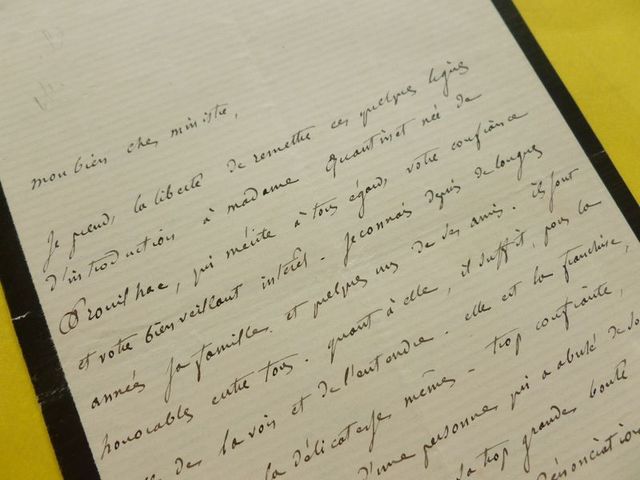 mon bien cher ministre,
Je prends la liberté de remettre ces quelques lignes
d'introduction à madame Quantinet née de
Prouilhac, qui mérite à tous égards, votre confiance
et votre bienveillant intérêt. Je connais depuis de longues
années sa famille, et quelques uns de ses amis. ils sont
honorables entre tous. quant à elle, il suffit, pour la
de la voir et de l'entendre. elle est la franchise,
la délicatesse même. trop confiante,
d'une personne qui a abusé de
sa trop grande bonté
dénonciation